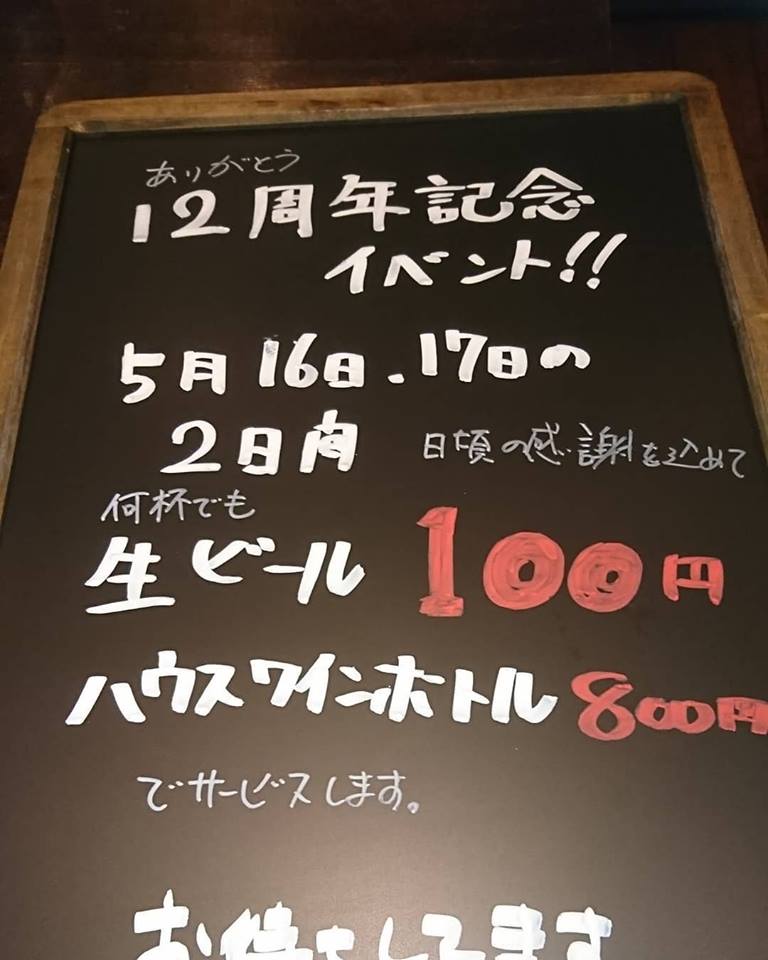 ありがとう
12周年記念
イベント!!
5月16日.17日の
2日間
日頃の感謝を込めて
何杯でも
生ビール 100円
ハウスワインボトル 800円
でサービスします。
お待ちしてます